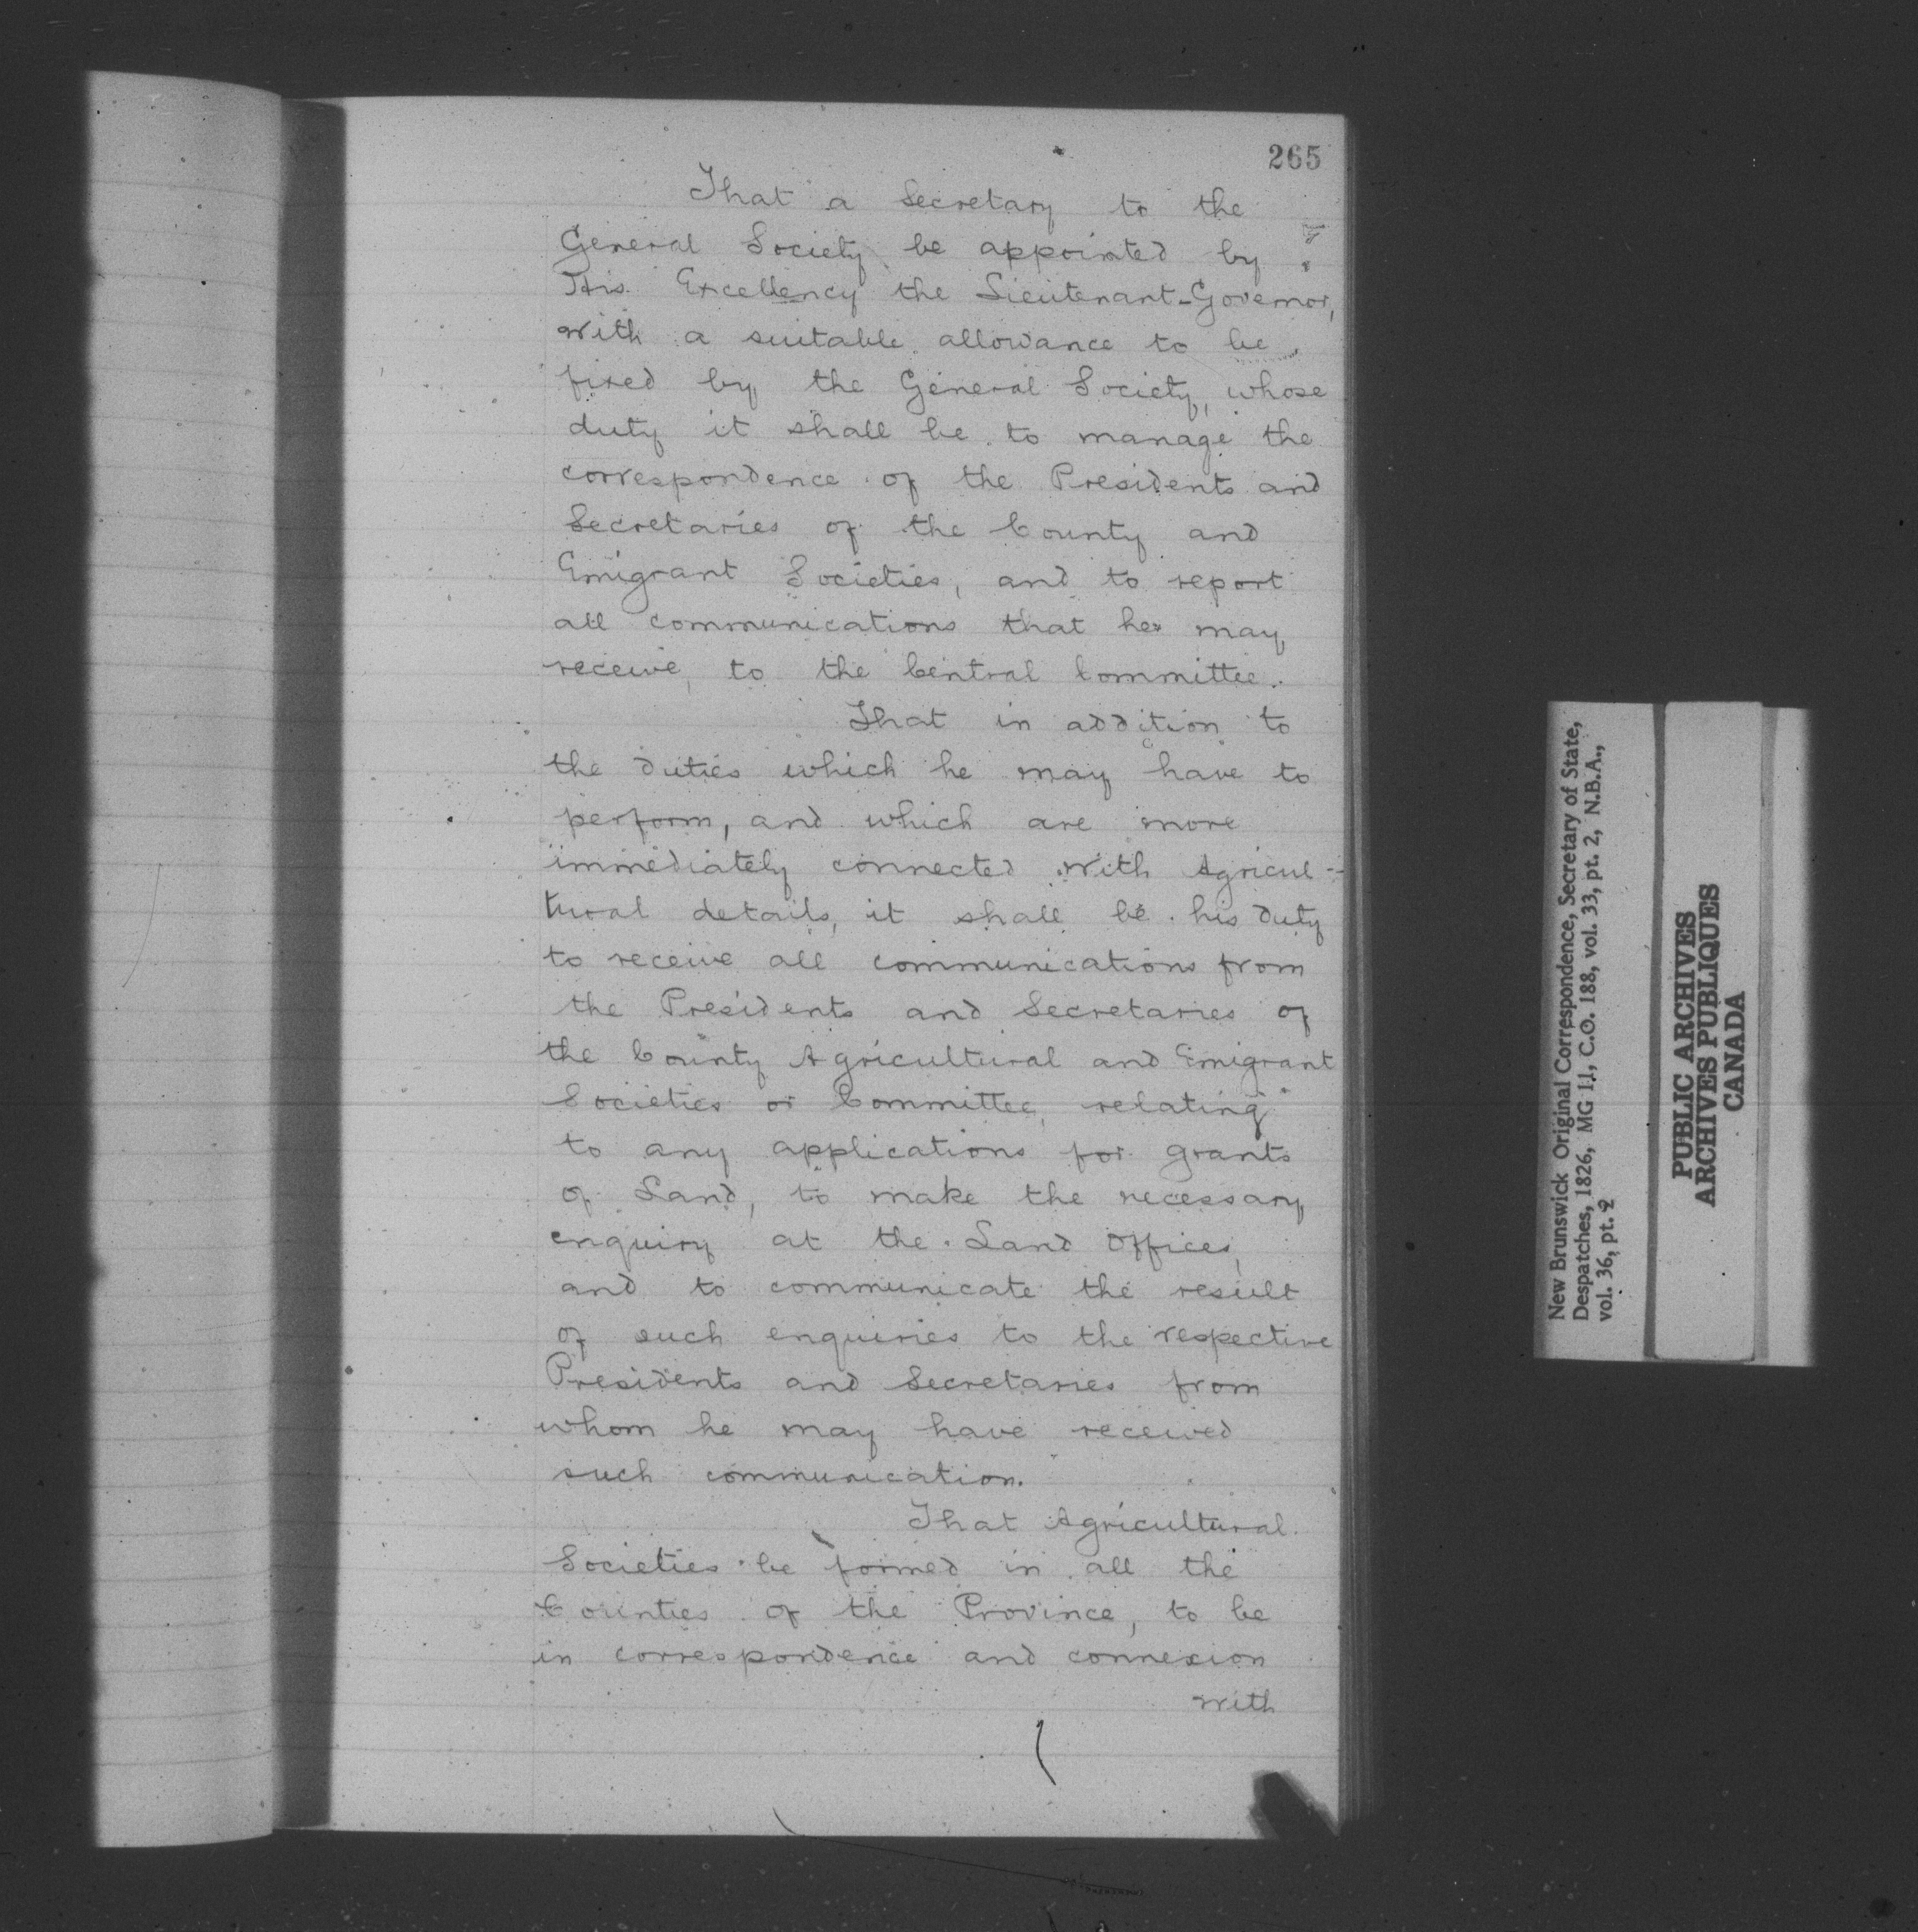 265
That a Secretary to the
General Society be appointed by
His Excellency the Lieutenant-Governor,
with a suitable allowance to be
fixed by the General Society, whose
duty it shall be to manage the
correspondence of the Presidents and
Secretaries of the County and
Emigrant Societies, and to report
all communications that he may
receive, to the Central Committee.
That in addition to
the duties which he may have to
perform, and which are more
immediately connected with Agricul-
tural details, it shall be his duty
to receive all communications from
the Presidents and Secretaries of
the County Agricultural and Emigrant
Societies or Committee, relating
to any applications for grants
of Land, to make the necessary
enquiry at the Land Offices,
and to communicate the result
of such enquiries to the respective
Presidents and Secretaries from
whom he may have received
such communication.
That Agricultural
Societies be formed in all the
Counties of the Province, to be
in correspondence and connexion
with
New Brunswick Original Correspondence, Secretary of State,
Despatches, 1826, MG 11, C.O. 188, vol. 33, pt. 2, N.B.A.,
vol. 36, pt. 2
PUBLIC ARCHIVES
ARCHIVES PUBLIQUES
CANADA